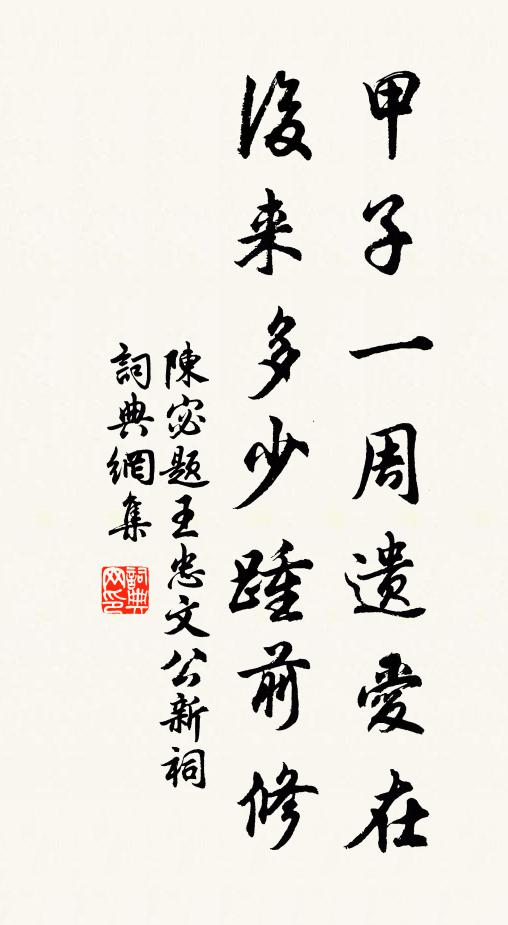 甲子一周遗爱在
後来多少踵前修
陳宓题王忠文公新祠
詞典網集
詞典网印